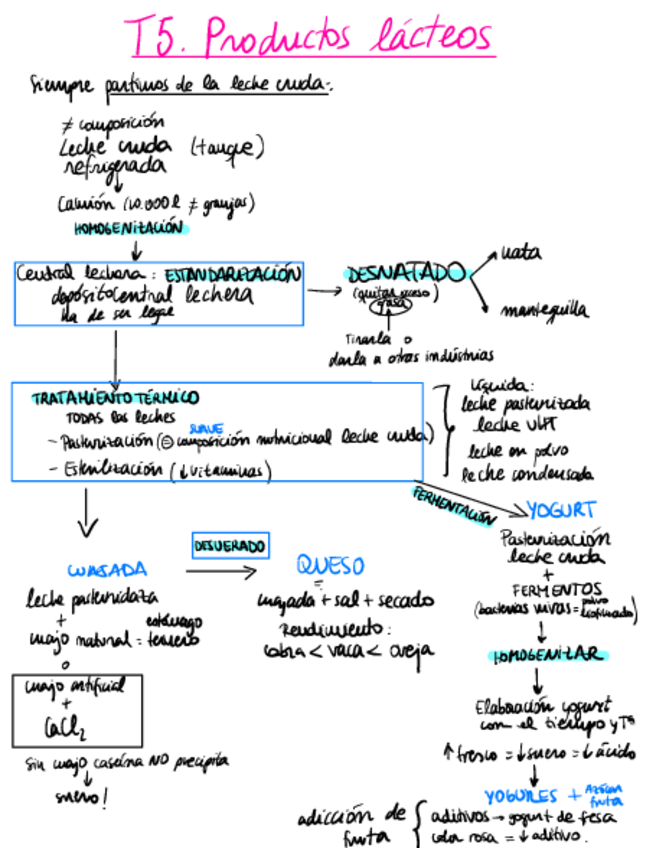 T5. Productos lácteos
Siempre partimos de la leche cruda.
≠ composición
Leche cruda (tanque)
refrigerada
Camión (10.000 l ≠ granjas)
HOMOGENIZACIÓN
Central lechera: ESTANDARIZACIÓN
depósito central lechera
ha de ser legal
DESNATADO
(quitar queso)
grasa
nata
mantequilla
Tirarla o
darla a otras indústrias
TRATAMIENTO TÉRMICO
TODAS las leches
SUAVE
- Pasteurización (= composición nutricional leche cruda)
- Esterilización (↓ vitaminas)
Líquida:
leche pasteurizada
leche UHT
leche en polvo
leche condensada
FERMENTACIÓN
YOGURT
Pasteurización
leche cruda
+
FERMENTOS
(bacterias vivas = polvo liofilizado)
HOMOGENIZAR
Elaboración yogurt
con el tiempo y Tª
↑ fresco = ↓ suero = ↓ ácido
YOGURES + Azúcar
fruta
adicción de
fruta
aditivos → yogurt de fresa
color rosa = ↓ aditivo.
CUAJADA
leche pasteuridaza
+
estómago
cuajo natural = ternero
o
cuajo artificial
+
CaCl2
Sin cuajo caseína NO precipita
suero!
DESUERADO
QUESO
=
cuajada + sal + secado
Rendimiento:
cabra < vaca < oveja